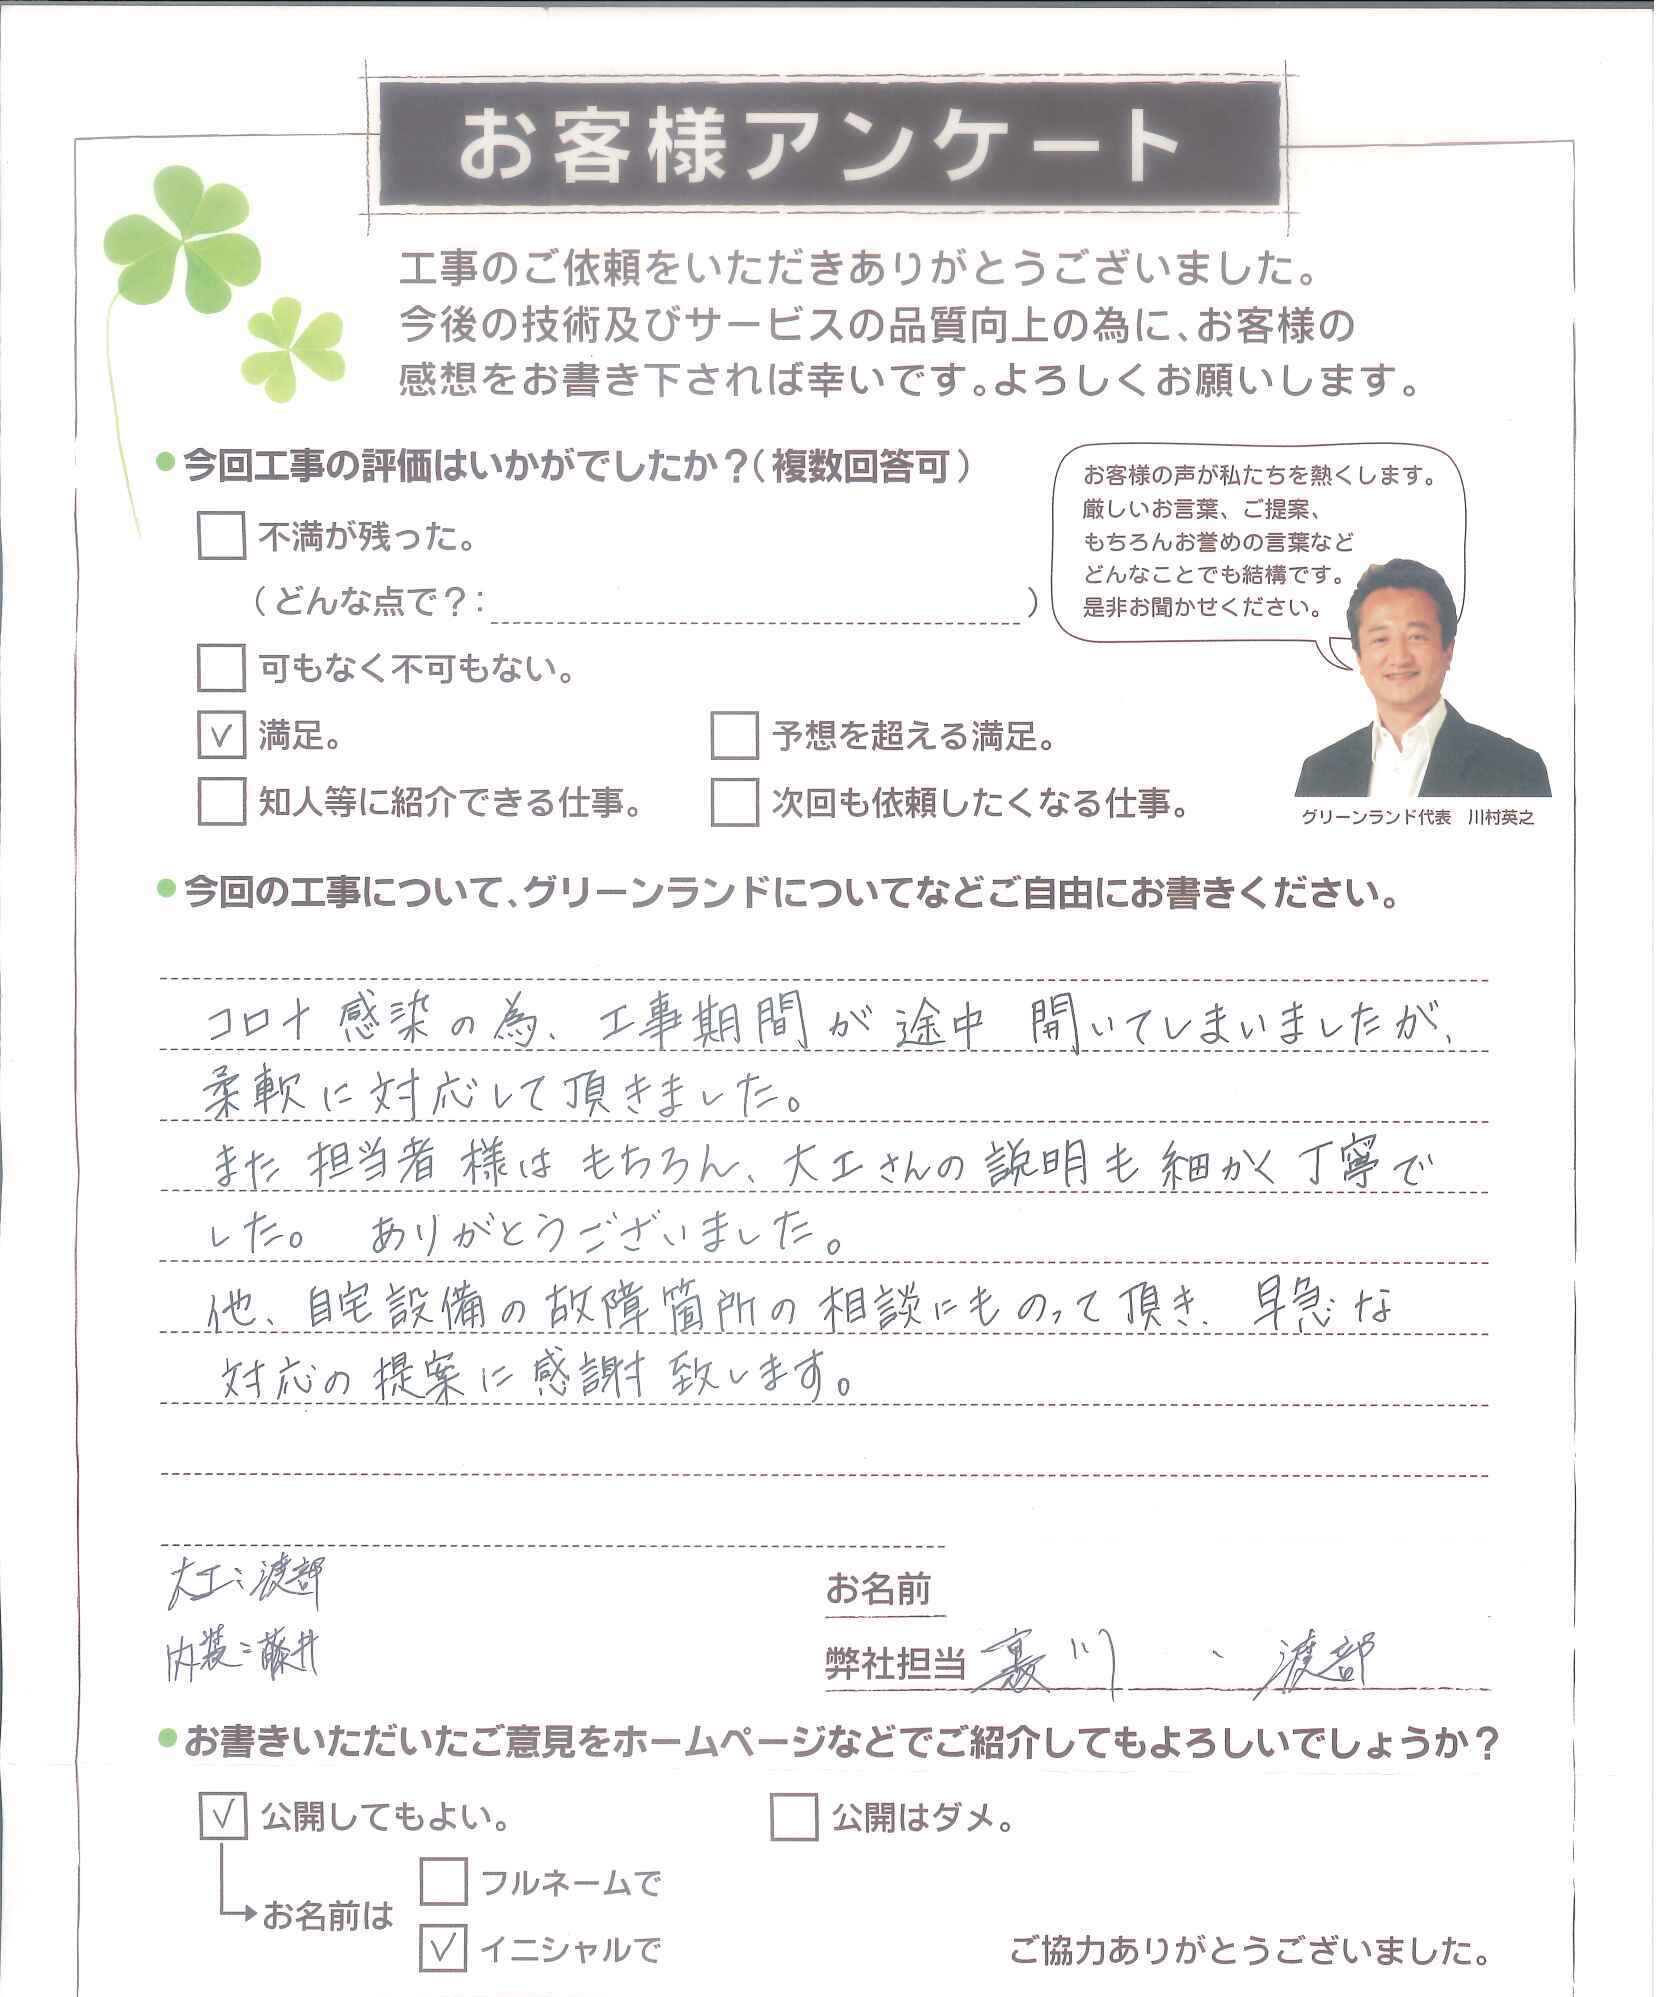 お客様アンケート
工事のご依頼をいただきありがとうございました。
今後の技術及びサービスの品質向上の為に、お客様の
感想をお書き下されば幸いです。よろしくお願いします。
今回工事の評価はいかがでしたか？（複数回答可）
不満が残った。
（どんな点で？: ）
可もなく不可もない。
✓ 満足。
予想を超える満足。
知人等に紹介できる仕事。
次回も依頼したくなる仕事。
お客様の声が私たちを熱くします。
厳しいお言葉、ご提案、
もちろんお誉めの言葉など
どんなことでも結構です。
是非お聞かせください。
グリーンランド代表　川村英之
今回の工事について、グリーンランドについてなどご自由にお書きください。
コロナ感染の為、工事期間が途中 開いてしまいましたが、
柔軟に対応して頂きました。
また担当者様はもちろん、大工さんの説明も細かく丁寧で
した。 ありがとうございました。
他、自宅設備の故障箇所の相談にものって頂き、早急な
対応の提案に感謝致します。
大工:渡部
内装:藤井
お名前
弊社担当 裏川 、渡部
お書きいただいたご意見をホームページなどでご紹介してもよろしいでしょうか？
✓ 公開してもよい。
公開はダメ。
お名前は
フルネームで
✓ イニシャルで
ご協力ありがとうございました。